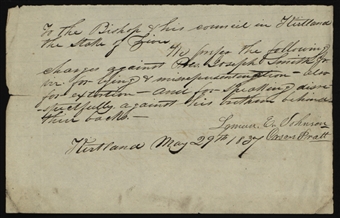 To the Bishop & his council in Kirtland
the Stake of Zion
We prefer the following
charges against Pres. Joseph Smith Jr
viz for lying & misrepresentation — also
for extortion — and for speaking disre
spectfully against his brethren behind
their backs —
Lyman E. Johnson
Orson Pratt
Kirtland May 29th 1837